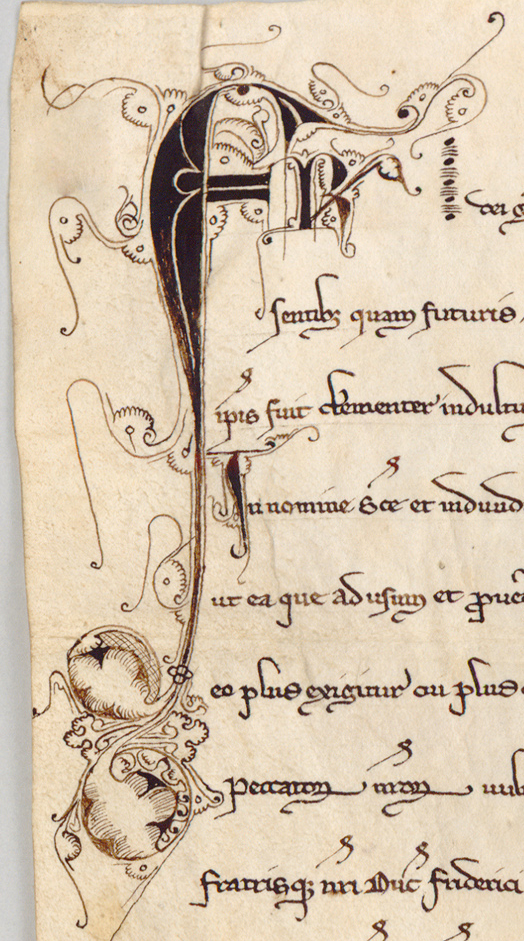 dei g
sentibz quam futuris
ipis fuit clementer indultu
In nomine Sce et indiuid
ut ea que ad usum et
eo plus exigitur cu plus
peccatorz nrorz
fratrisqz nri Duc friderici